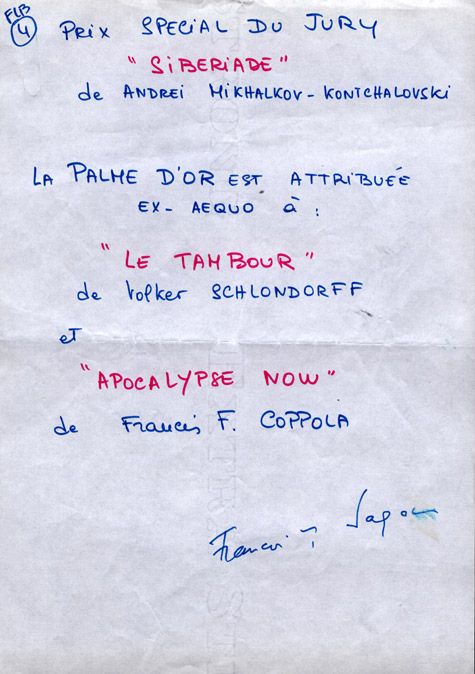 FLB
4
PRIX SPECIAL DU JURY
"SIBERIADE"
de ANDREI MIKHALKOV-KONTCHALOVSKI
LA PALME D'OR EST ATTRIBUÉE
EX-AEQUO À :
"LE TAMBOUR"
de Volker SCHLONDORFF
et
"APOCALYPSE NOW"
de Francis F. COPPOLA